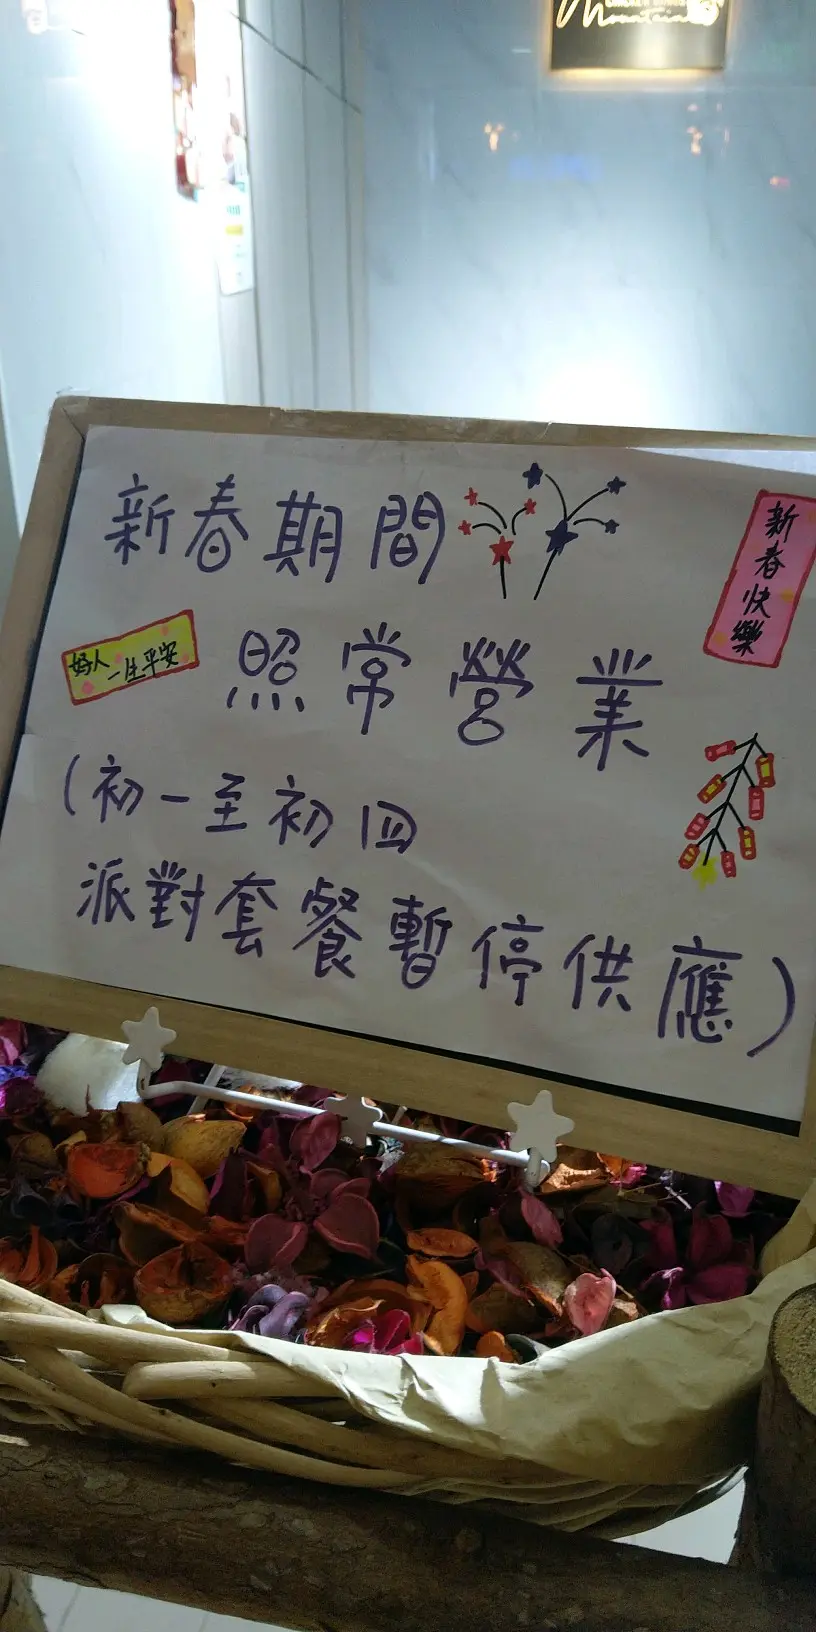 Mountain
新春期間
新春快樂
好人一生平安
照常營業
(初一至初四
派對套餐暫停供應)